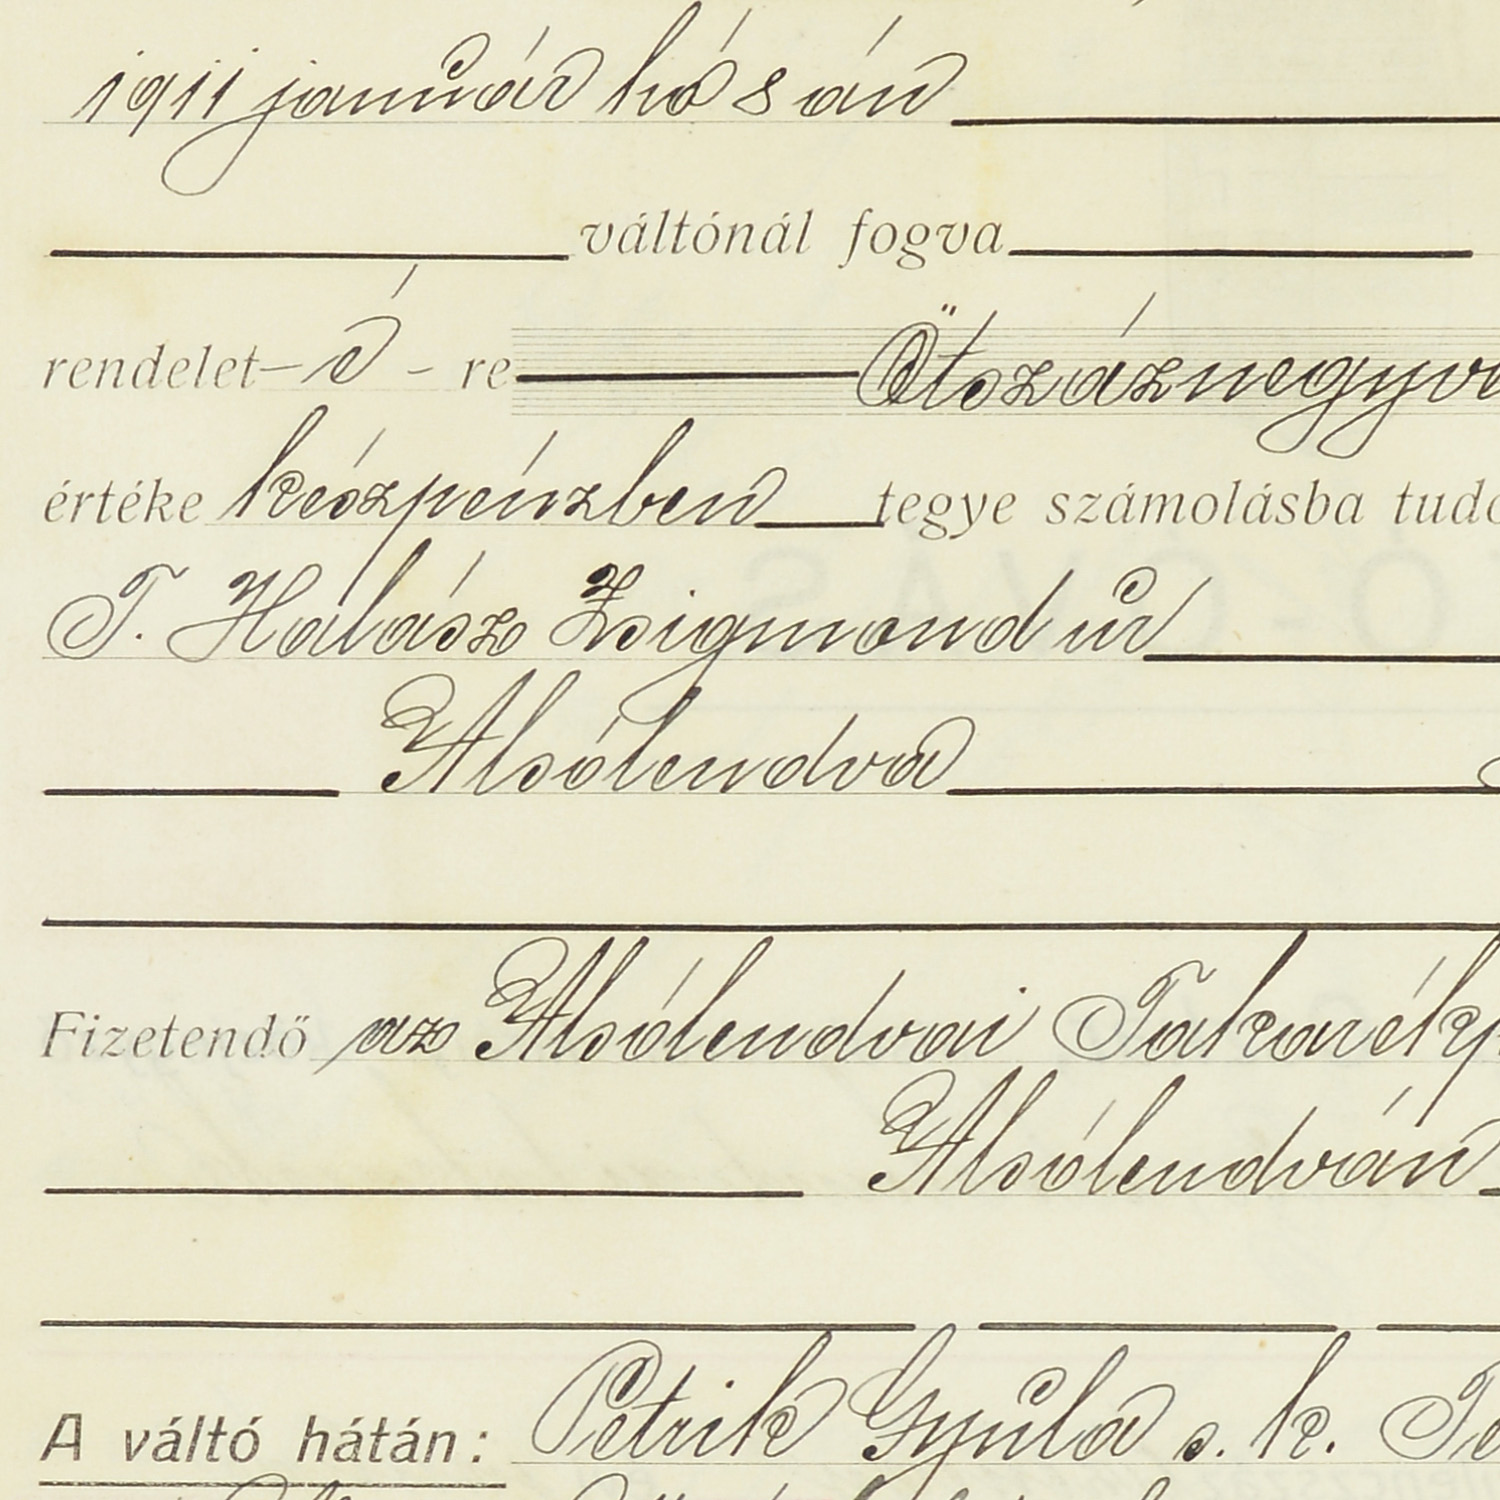 1911 január hó 8 án
váltónál fogva
rendelet-é-re Ötszáznegyve
értéke készpénzben tegye számolásba tudó
T. Halász Zsigmond úr
Alsólendva
Fizetendő az Alsólendvai Takarékp
Alsólendván
A váltó hátán: Petrik Gyula s. k.